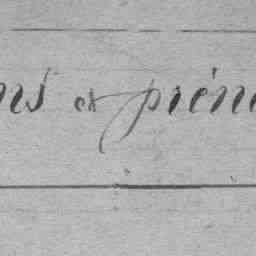 ms et prén